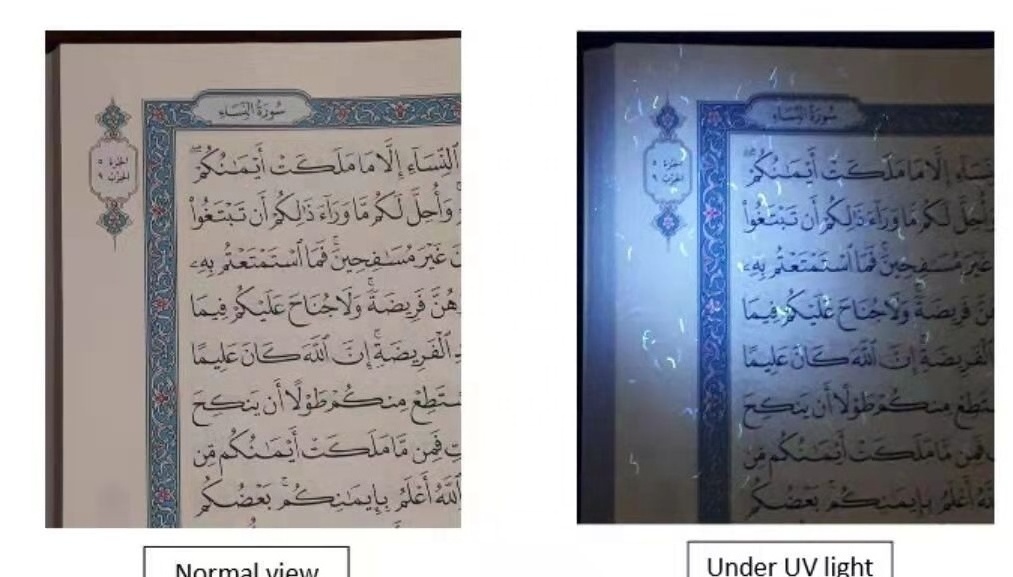 سُورَةُ النِّسَاءِ
الجزء ٥
الحزب ٩
ٱلنِّسَآءِ إِلَّا مَا مَلَكَتْ أَيْمَٰنُكُمْ ۖ
وَأُحِلَّ لَكُم مَّا وَرَآءَ ذَٰلِكُمْ أَن تَبْتَغُوا۟
غَيْرَ مُسَٰفِحِينَ ۚ فَمَا ٱسْتَمْتَعْتُم بِهِۦ
هُنَّ فَرِيضَةً ۚ وَلَا جُنَاحَ عَلَيْكُمْ فِيمَا
ٱلْفَرِيضَةِ ۚ إِنَّ ٱللَّهَ كَانَ عَلِيمًا
سْتَطِعْ مِنكُمْ طَوْلًا أَن يَنكِحَ
تِ فَمِن مَّا مَلَكَتْ أَيْمَٰنُكُم مِّن
ٱللَّهُ أَعْلَمُ بِإِيمَٰنِكُم ۚ بَعْضُكُم
Normal view
سُورَةُ النِّسَاءِ
الجزء ٥
الحزب ٩
نِّسَآءِ إِلَّا مَا مَلَكَتْ أَيْمَٰنُكُمْ ۖ
وَأُحِلَّ لَكُم مَّا وَرَآءَ ذَٰلِكُمْ أَن تَبْتَغُوا۟
غَيْرَ مُسَٰفِحِينَ ۚ فَمَا ٱسْتَمْتَعْتُم بِهِۦ
نَّ فَرِيضَةً ۚ وَلَا جُنَاحَ عَلَيْكُمْ فِيمَا
ٱلْفَرِيضَةِ ۚ إِنَّ ٱللَّهَ كَانَ عَلِيمًا
سْتَطِعْ مِنكُمْ طَوْلًا أَن يَنكِحَ
فَمِن مَّا مَلَكَتْ أَيْمَٰنُكُم مِّن
لَّهُ أَعْلَمُ بِإِيمَٰنِكُم ۚ بَعْضُكُم
Under UV light